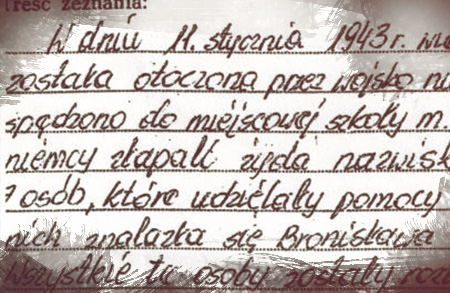 Treść zeznania:
W dniu 11. stycznia 1943 r.
została otoczona przez wojsko
spędzono do miejscowej szkoły m.
niemcy złapali żyda nazwisk
7 osób, które udzielały pomocy
nich znalazła się Bronisława
Wszystkie te osoby zostały roz